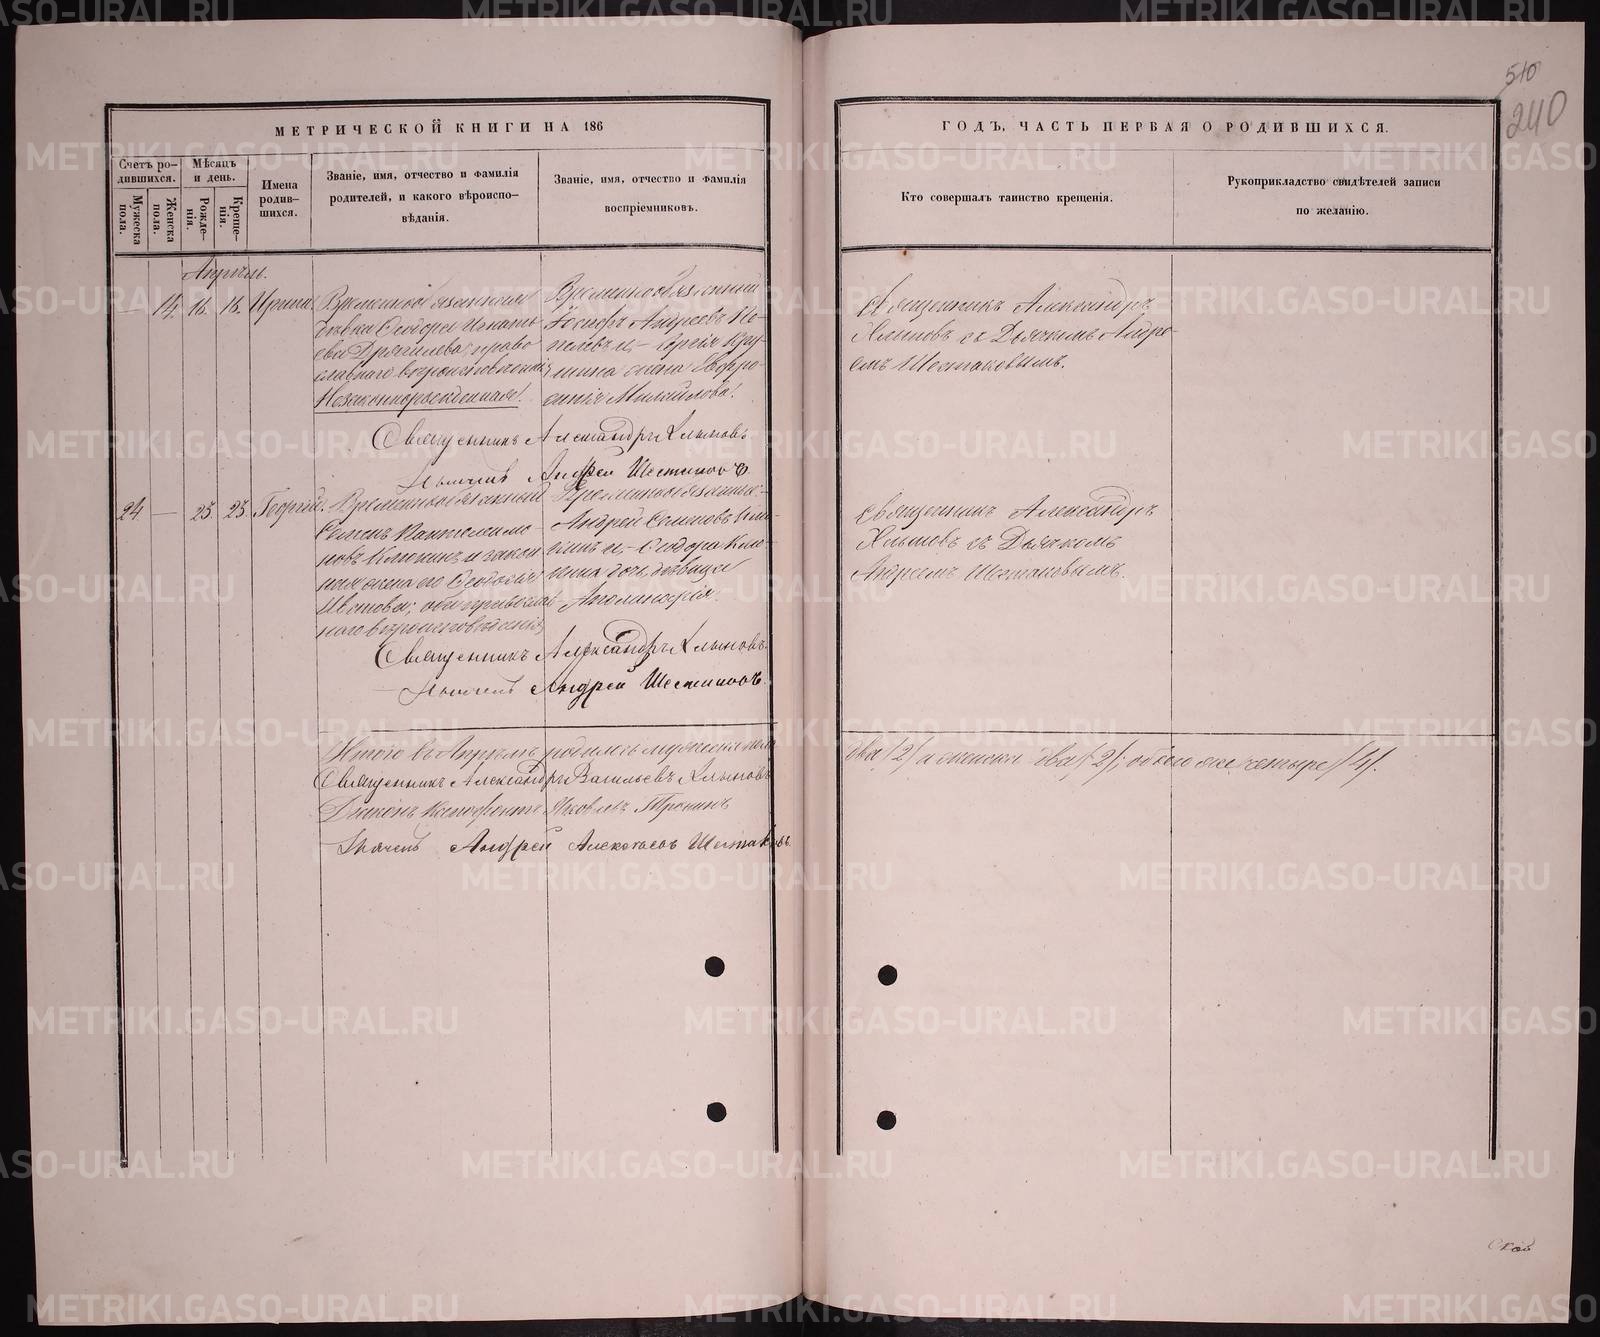 510
240
МЕТРИЧЕСКОЙ КНИГИ НА 186
ГОДЪ, ЧАСТЬ ПЕРВАЯ О РОДИВШИХСЯ.
Счетъ ро-
дившихся.
Мужеска
пола.
Женска
пола.
Мѣсяцъ
и день.
Рожде-
нія.
Креще-
нія.
Имена
родив-
шихся.
Званіе, имя, отчество и фамилія
родителей, и какого вѣроиспо-
вѣданія.
Званіе, имя, отчество и фамилія
воспріемниковъ.
Кто совершалъ таинство крещенія.
Рукоприкладство свидѣтелей записи
по желанію.
Апрѣль.
— 14. 16. 16. Ирина.
Временнообязанная
дѣвка Ѳеодора Игнать-
ева право
славнаго вѣроисповѣданія
Незаконнорожденная!
Временнообязанный
Андреевъ По-
жена Евфро-
синія Михайлова!
Священникъ Александръ
Хлыновъ съ Дьячкомъ Андре-
емъ Шестаковымъ.
Священникъ Александръ Хлыновъ
Дьячекъ Андрей Шестаковъ
24 — 23. 23. Георгій.
Временнообязанный
Пантелеймо-
новъ и закон
ная жена его Ѳеодосія
оба православ
наго вѣроисповѣданія
Временнообязанные:
Андрей Семеновъ
и Ѳеодора
дочь, дѣвица
Аполинарія.
Священникъ Александръ
Хлыновъ съ Дьячкомъ
Андреемъ Шестаковымъ.
Священникъ Александръ Хлыновъ
Дьячекъ Андрей Шестаковъ.
Итого въ Апрѣлѣ родилось мужеска пола
два /2/ и женска два /2/; обоего же четыре /4/.
Священникъ Александръ Васильевъ Хлыновъ
Діаконъ Ксенофонтъ Яковлевъ Тронинъ
Дьячекъ Андрей Алексѣевъ Шестаковъ.
METRIKI.GASO-URAL.RU